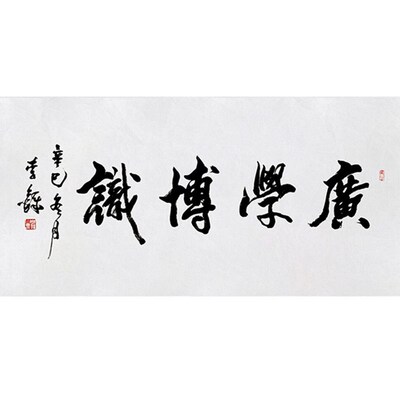 廣學博識
辛巳冬月
李鐸